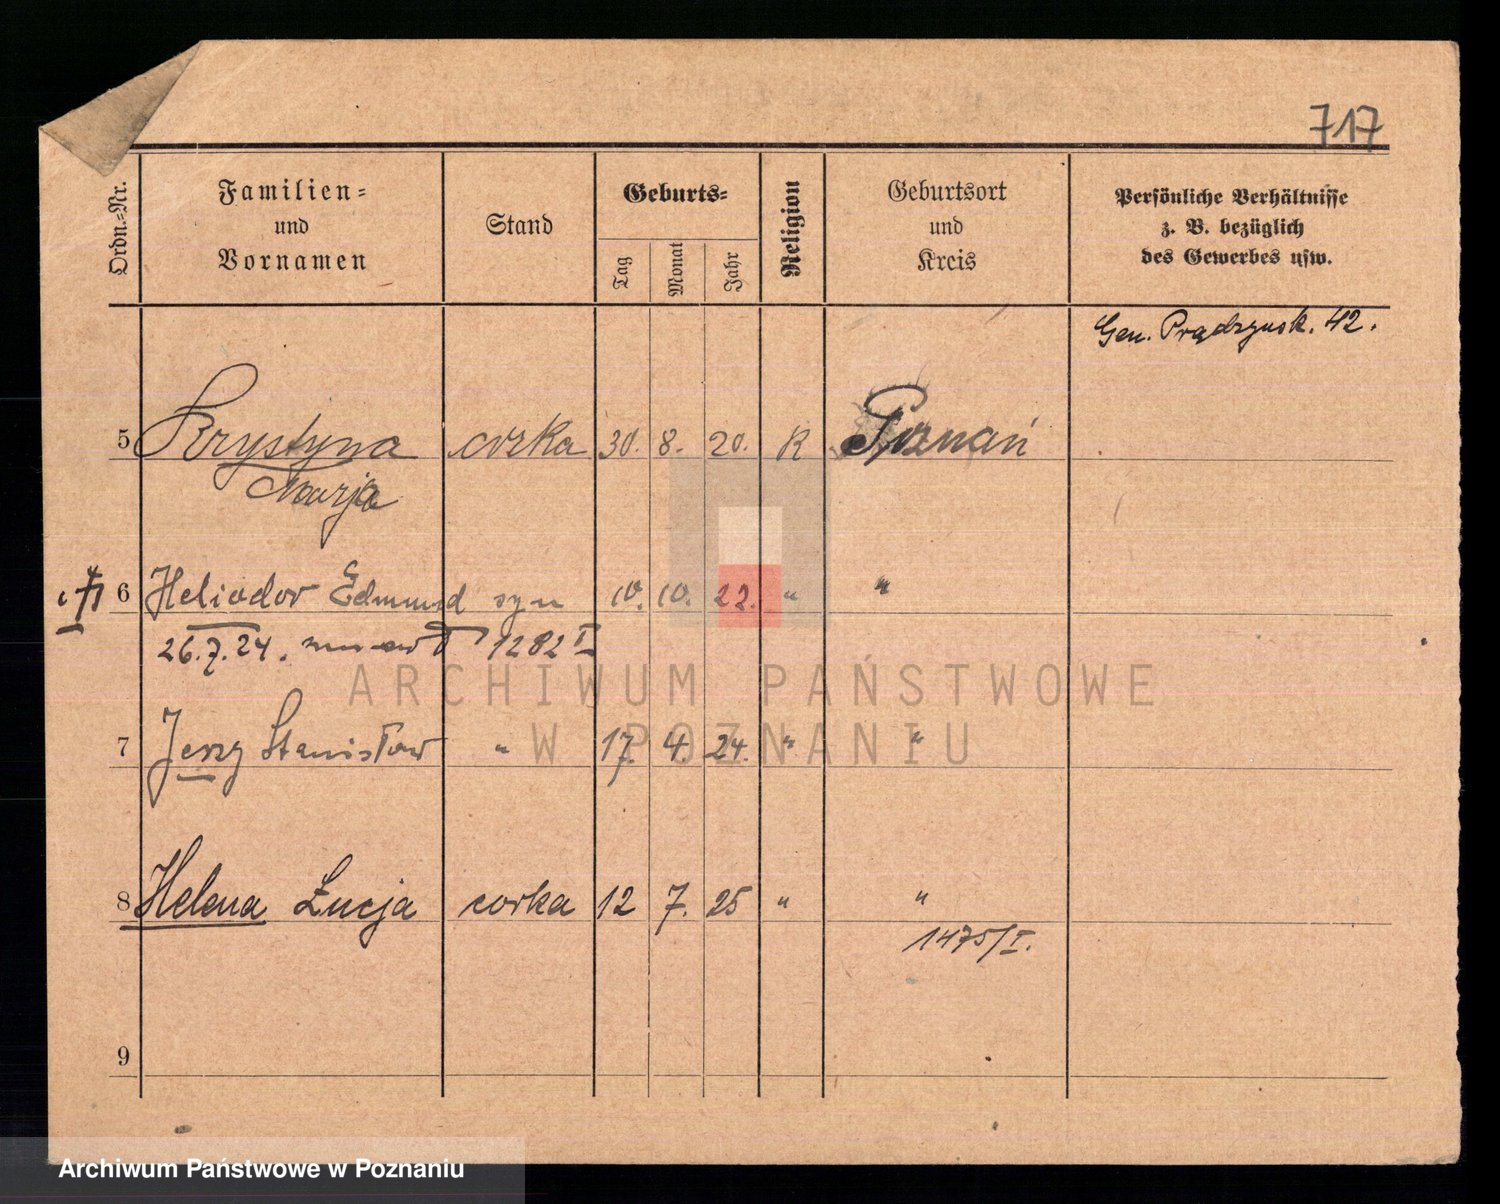 717
Ordn.=Nr. Familien= und Vornamen Stand Geburts= Tag Monat Jahr Religion Geburtsort und Kreis Persönliche Verhältnisse z. B. bezüglich des Gewerbes usw.
Gen. Prądzyńsk. 42.
5 Krystyna corka 30. 8. 20. R Poznań
Marja
6 Heliodor Edmund syn 10. 10. 22. " "
26.7.24. 1282 I
7 Jerzy Stanisław " 17. 4. 24. " "
8 Helena Łucja corka 12 7. 25 " "
1475/I.
9
ARCHIWUM PAŃSTWOWE
W POZNANIU
Archiwum Państwowe w Poznaniu